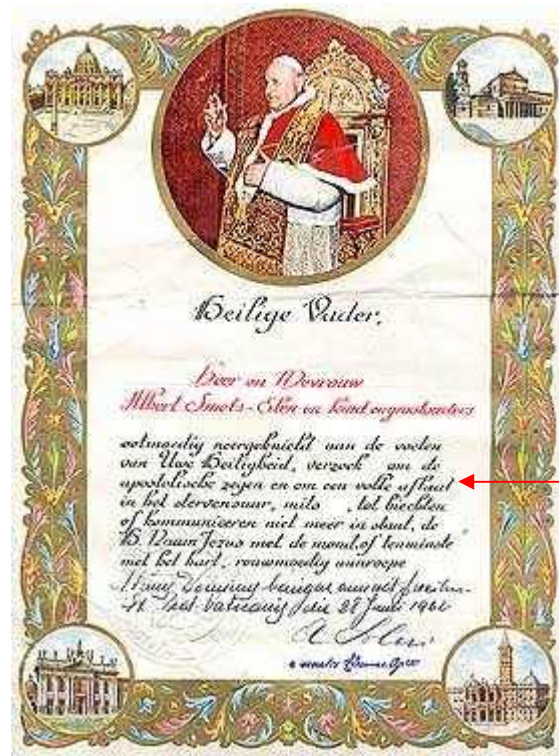 Heilige Vader,
Heer en Mevrouw
Albert Smets-Elen en kind en grootouders
ootmoedig neergeknield aan de voeten
van Uwe Heiligheid, verzoek om de
apostolische zegen en om een volle aflaat
in het stervensuur, mits tot biechten
of kommuniceren niet meer in staat, de
H. Naam Jezus met de mond, of tenminste
met het hart, rouwmoedig aanroepe
benigne annuit
die 28 Junii